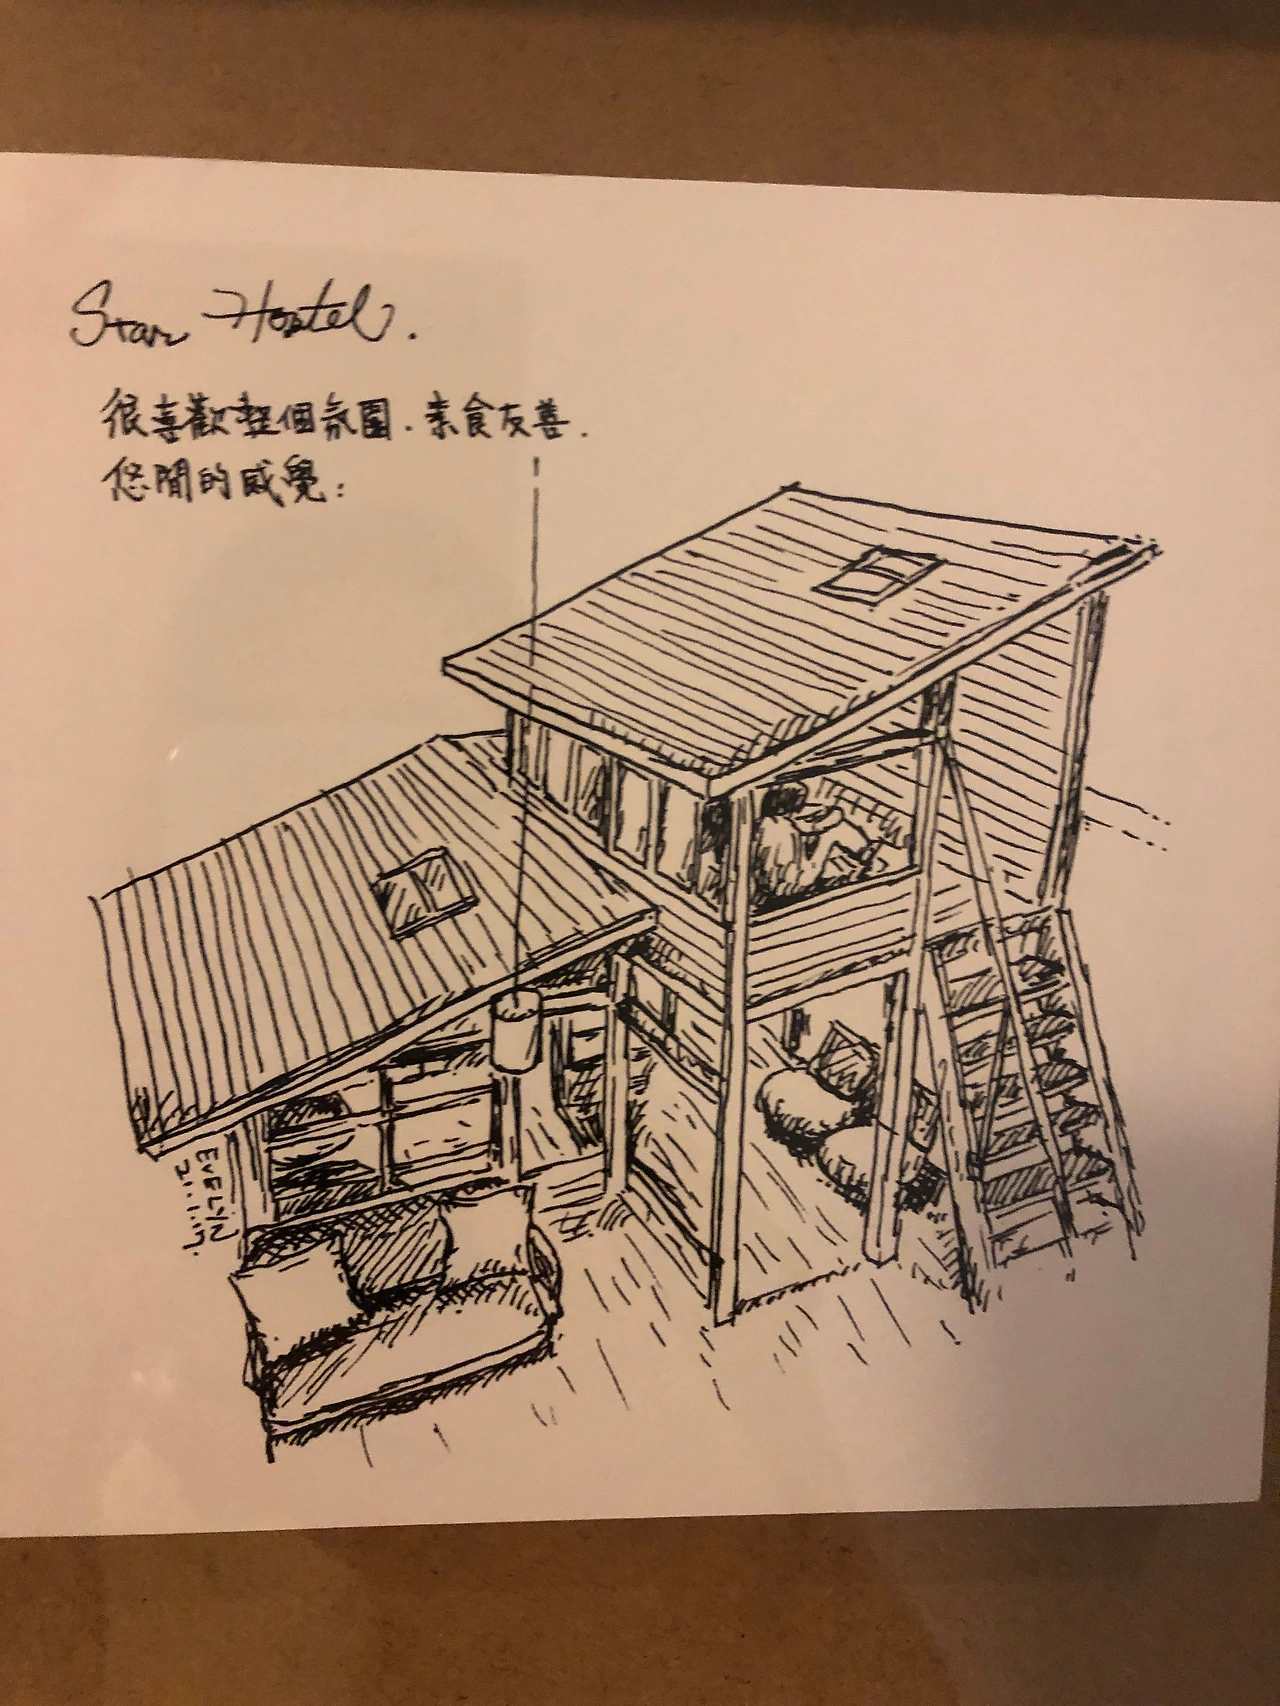 Star Hostel.
很喜歡整個氛圍.素食友善.
悠閒的感覺:
EVELYN
21.1.17.